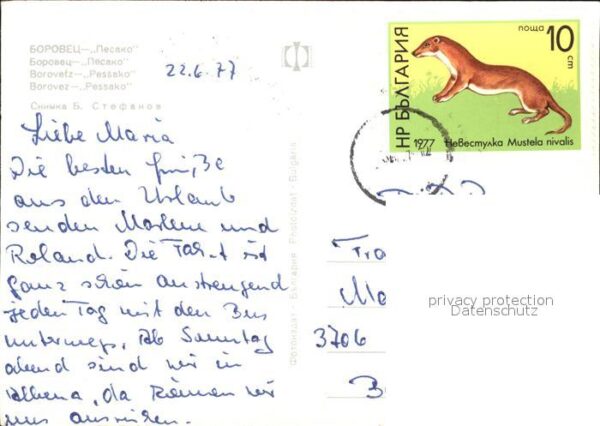 БОРОВЕЦ—„Песако"
Боровец—„Пѣсако"
Borovetz—„Pessako"
Borovez—„Pessako"
Снимка Б. Стефанов
22.6.77
Liebe Maria
Die besten Grüße
aus den Urlaub
senden Marlene und
Roland. Die Fahrt ist
ganz schön anstrengend
jeden Tag mit den Bus
unterwegs. Ab Sonntag
abend sind wir in
Albena, da können wir
uns ausruhen.
Фотоиздат - България Photoizdat - Bulgaria
НР БЪЛГАРИЯ
поща 10 cm
1977 Невестулка Mustela nivalis
3706
privacy protection
Datenschutz